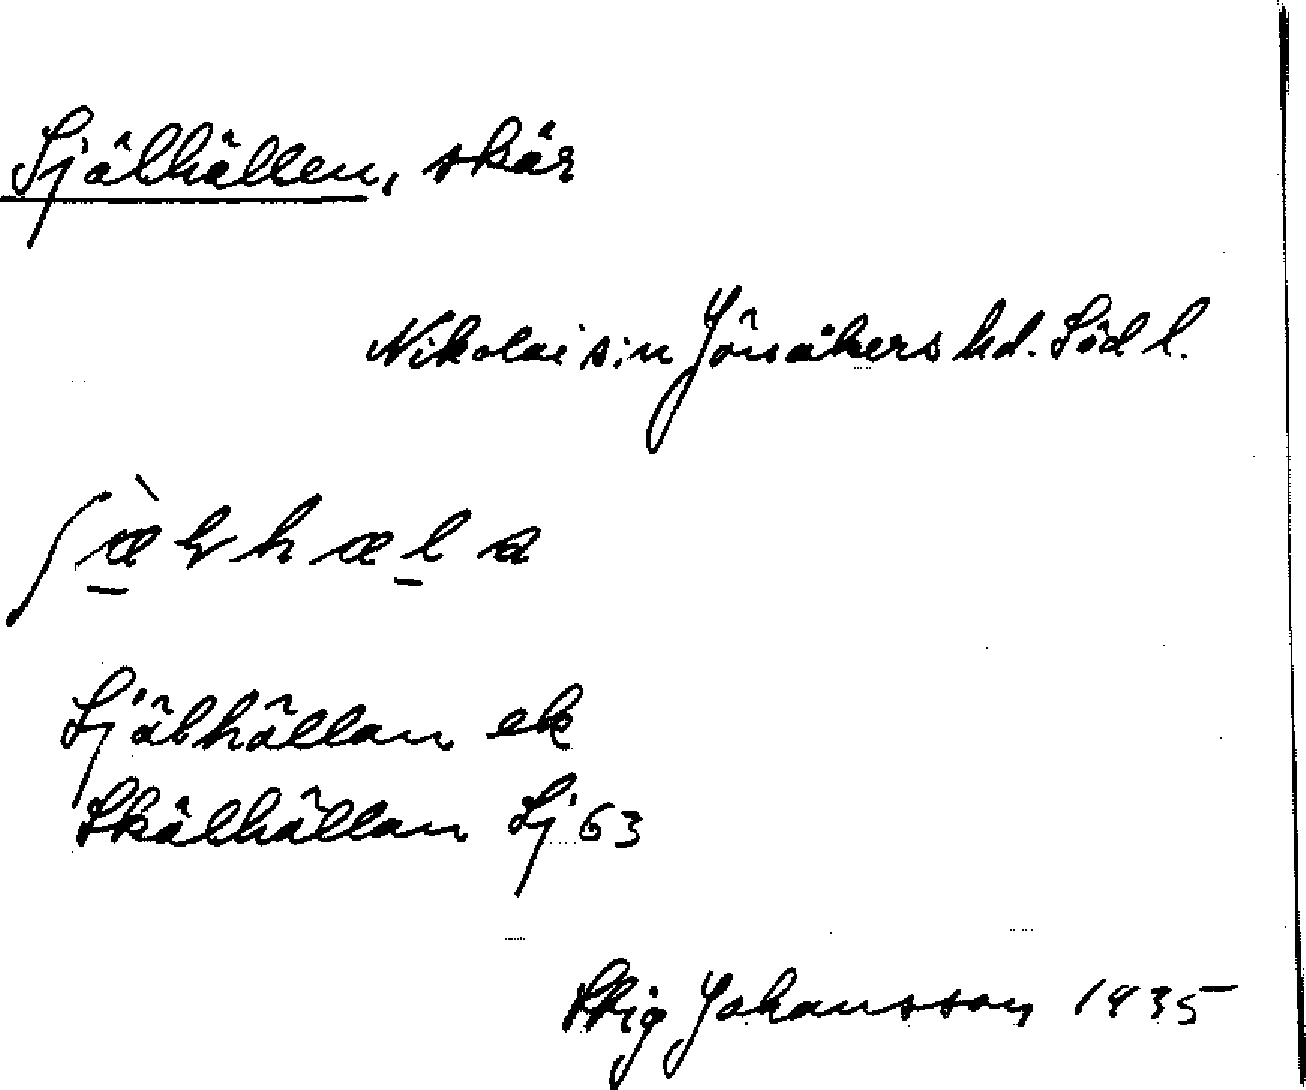 Själhällen, skär
Nikolai s:n Jönåkers hd. Söd l.
Själhällan ek
Skälhällan Sj 63
Stig Johansson 1935